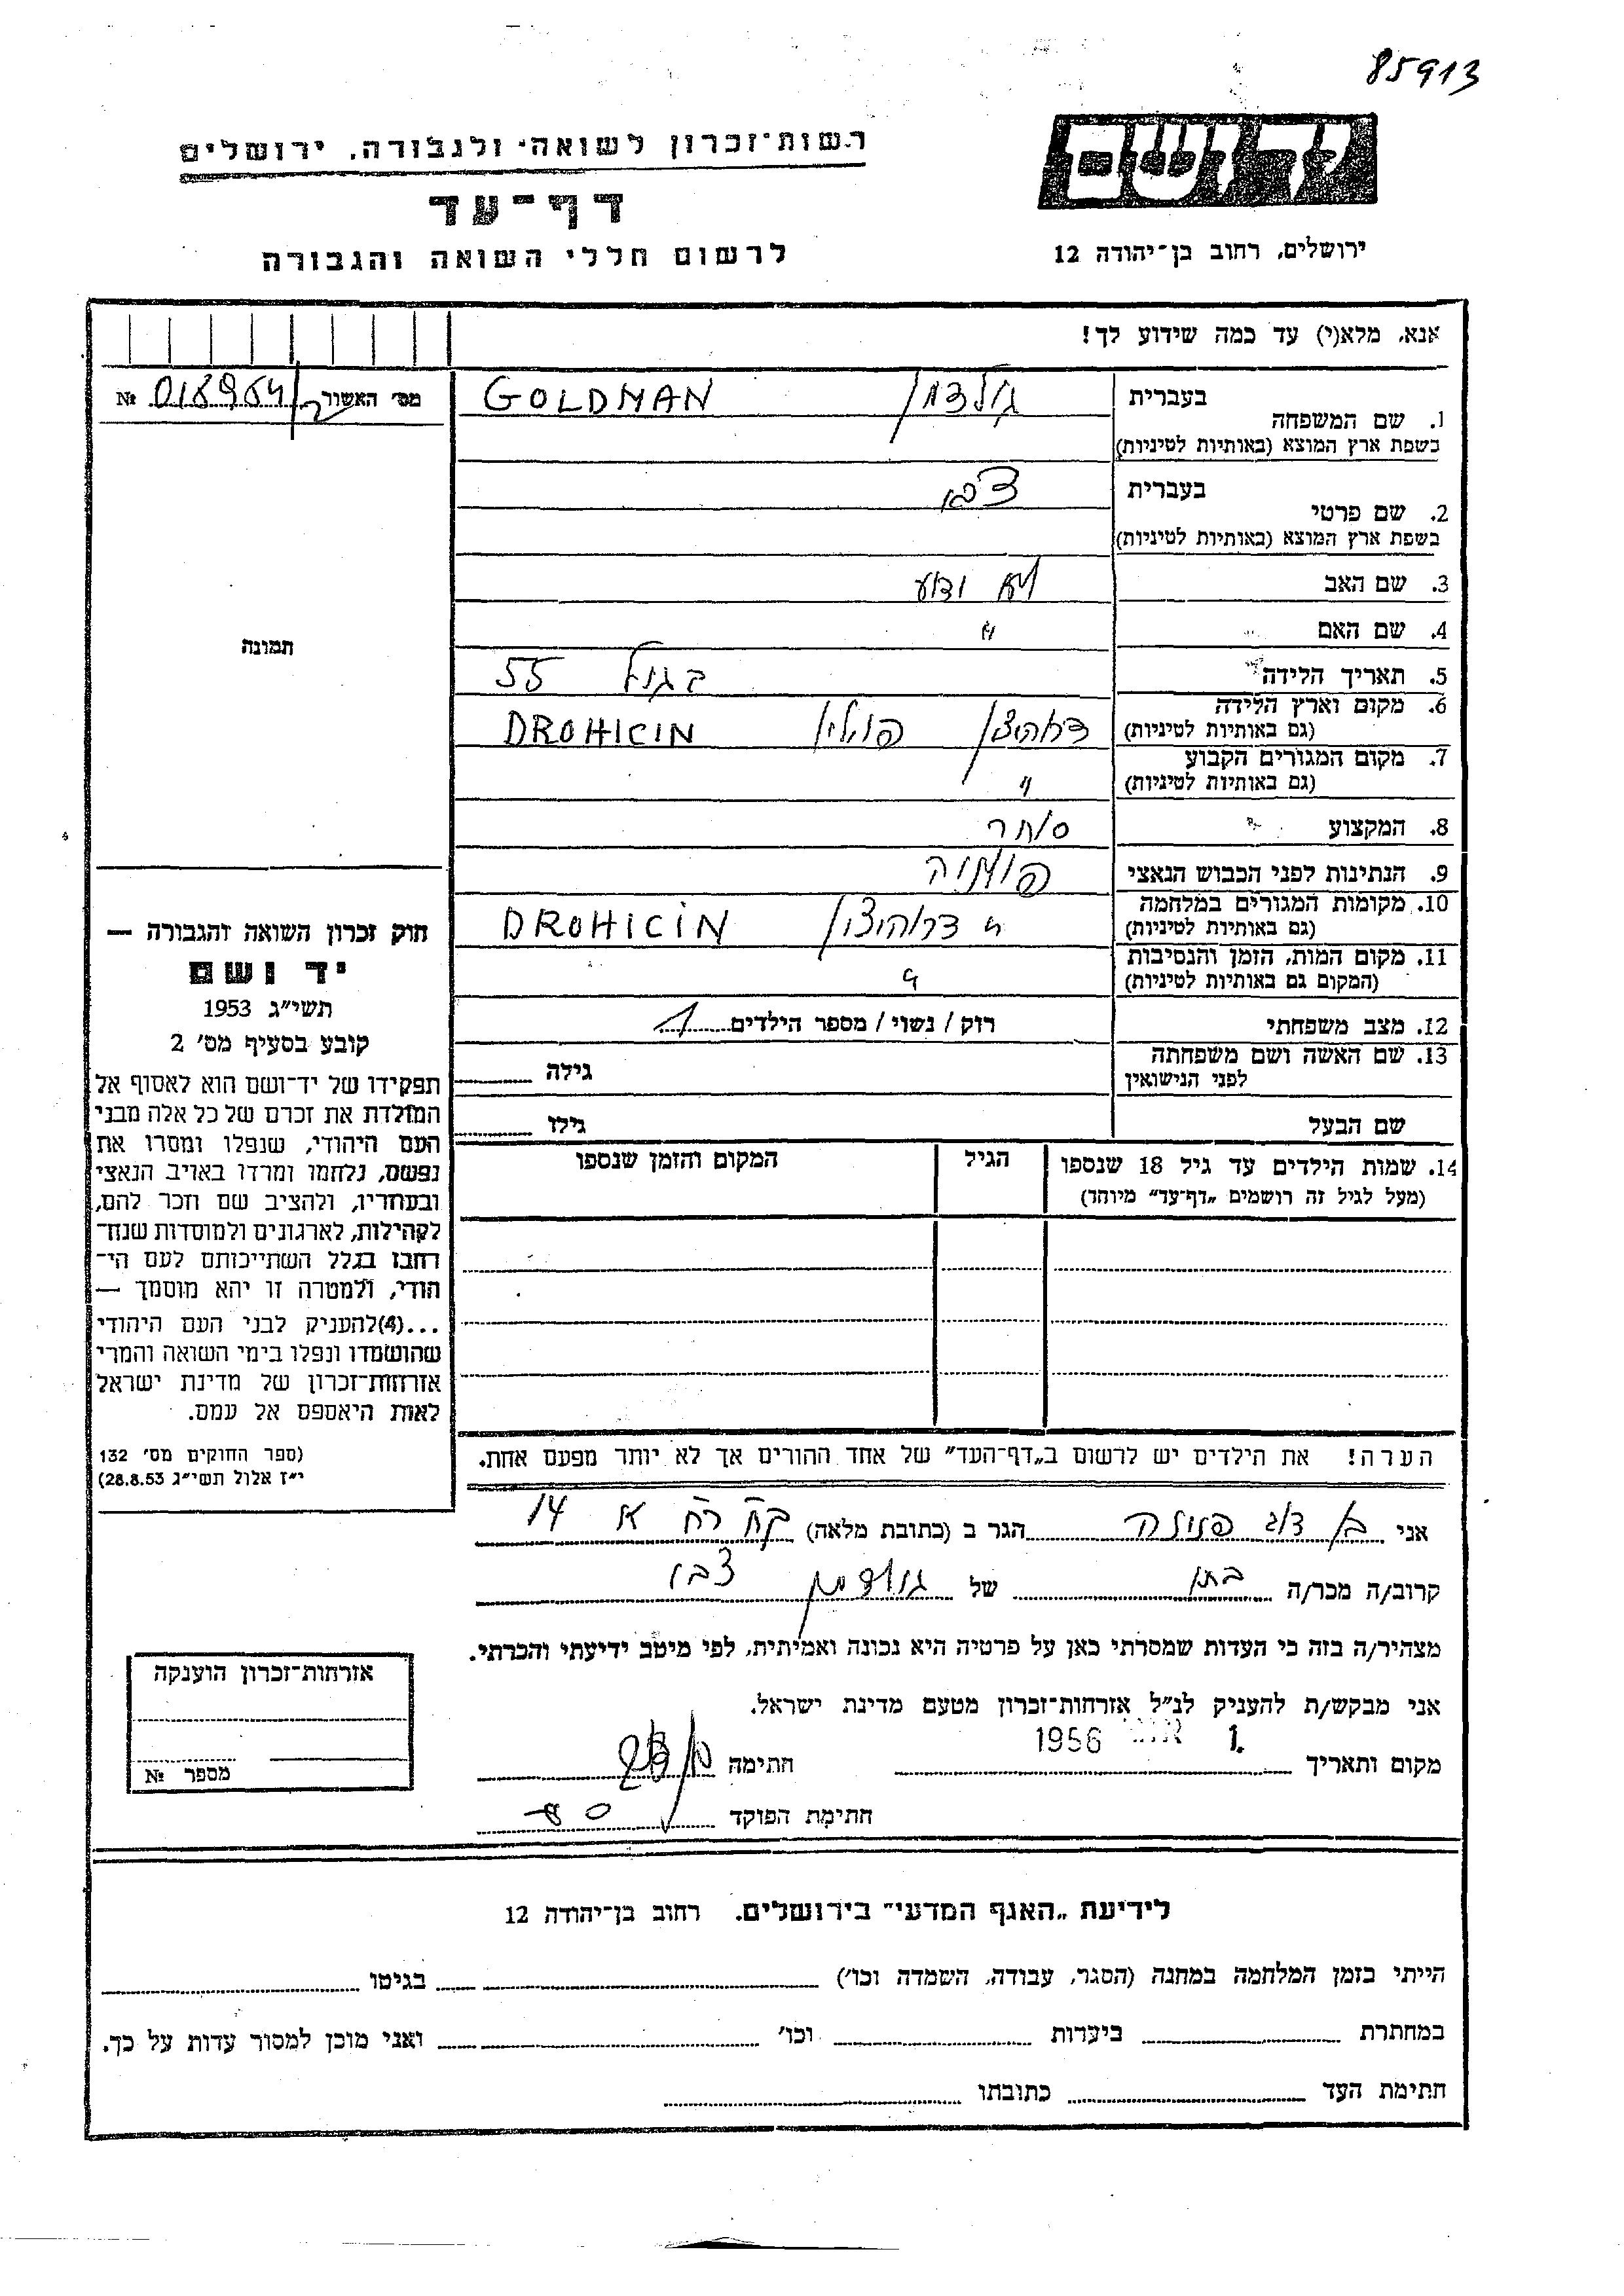 85913
יד ושם
רשות־זכרון לשואה ולגבורה, ירושלים
דף־עד
לרשום חללי השואה והגבורה
ירושלים, רחוב בן־יהודה 12
אנא, מלא(י) עד כמה שידוע לך!
מס׳ האשור № 018964/2
תמונה
1. שם המשפחה בעברית גולדמן GOLDMAN
בשפת ארץ המוצא (באותיות לטיניות)
2. שם פרטי בעברית צבי
בשפת ארץ המוצא (באותיות לטיניות)
3. שם האב לא ידוע
4. שם האם "
5. תאריך הלידה בגיל 55
6. מקום וארץ הלידה (גם באותיות לטיניות) דרוהיצין פולין DROHICIN
7. מקום המגורים הקבוע (גם באותיות לטיניות) "
8. המקצוע סוחר
9. הנתינות לפני הכבוש הנאצי פולניה
10. מקומות המגורים במלחמה (גם באותיות לטיניות) " דרוהיצין DROHICIN
11. מקום המות, הזמן והנסיבות (המקום גם באותיות לטיניות) "
12. מצב משפחתי רוק / נשוי / מספר הילדים 1
13. שם האשה ושם משפחתה לפני הנישואין גילה
שם הבעל גילו
14. שמות הילדים עד גיל 18 שנספו הגיל המקום והזמן שנספו
(מעל לגיל זה רושמים „דף־עד” מיוחד)
חוק זכרון השואה והגבורה —
יד ושם
תשי״ג 1953
קובע בסעיף מס׳ 2
תפקידו של יד־ושם הוא לאסוף אל
המולדת את זכרם של כל אלה מבני
העם היהודי, שנפלו ומסרו את
נפשם, נלחמו ומרדו באויב הנאצי
ובעוזריו, ולהציב שם וזכר להם,
לקהילות, לארגונים ולמוסדות שנח־
רבו בגלל השתייכותם לעם הי־
הודי, ולמטרה זו יהא מוסמך —
...(4) להעניק לבני העם היהודי
שהושמדו ונפלו בימי השואה והמרי
אזרחות־זכרון של מדינת ישראל
לאות היאספם אל עמם.
(ספר החוקים מס׳ 132
י״ז אלול תשי״ג 28.8.53)
הערה! את הילדים יש לרשום ב„דף־העד” של אחד ההורים אך לא יותר מפעם אחת.
אני הגר ב (כתובת מלאה) 14
קרוב/ה מכר/ה של גולדמן צבי
מצהיר/ה בזה כי העדות שמסרתי כאן על פרטיה היא נכונה ואמיתית, לפי מיטב ידיעתי והכרתי.
אני מבקש/ת להעניק לנ״ל אזרחות־זכרון מטעם מדינת ישראל.
מקום ותאריך 1. 1956 חתימה
חתימת הפוקד
אזרחות־זכרון הוענקה
מספר №
לידיעת „האגף המדעי” בירושלים, רחוב בן־יהודה 12
הייתי בזמן המלחמה במחנה (הסגר, עבודה, השמדה וכו׳) בגיטו
במחתרת ביערות וכו׳ ואני מוכן למסור עדות על כך.
חתימת העד כתובתו